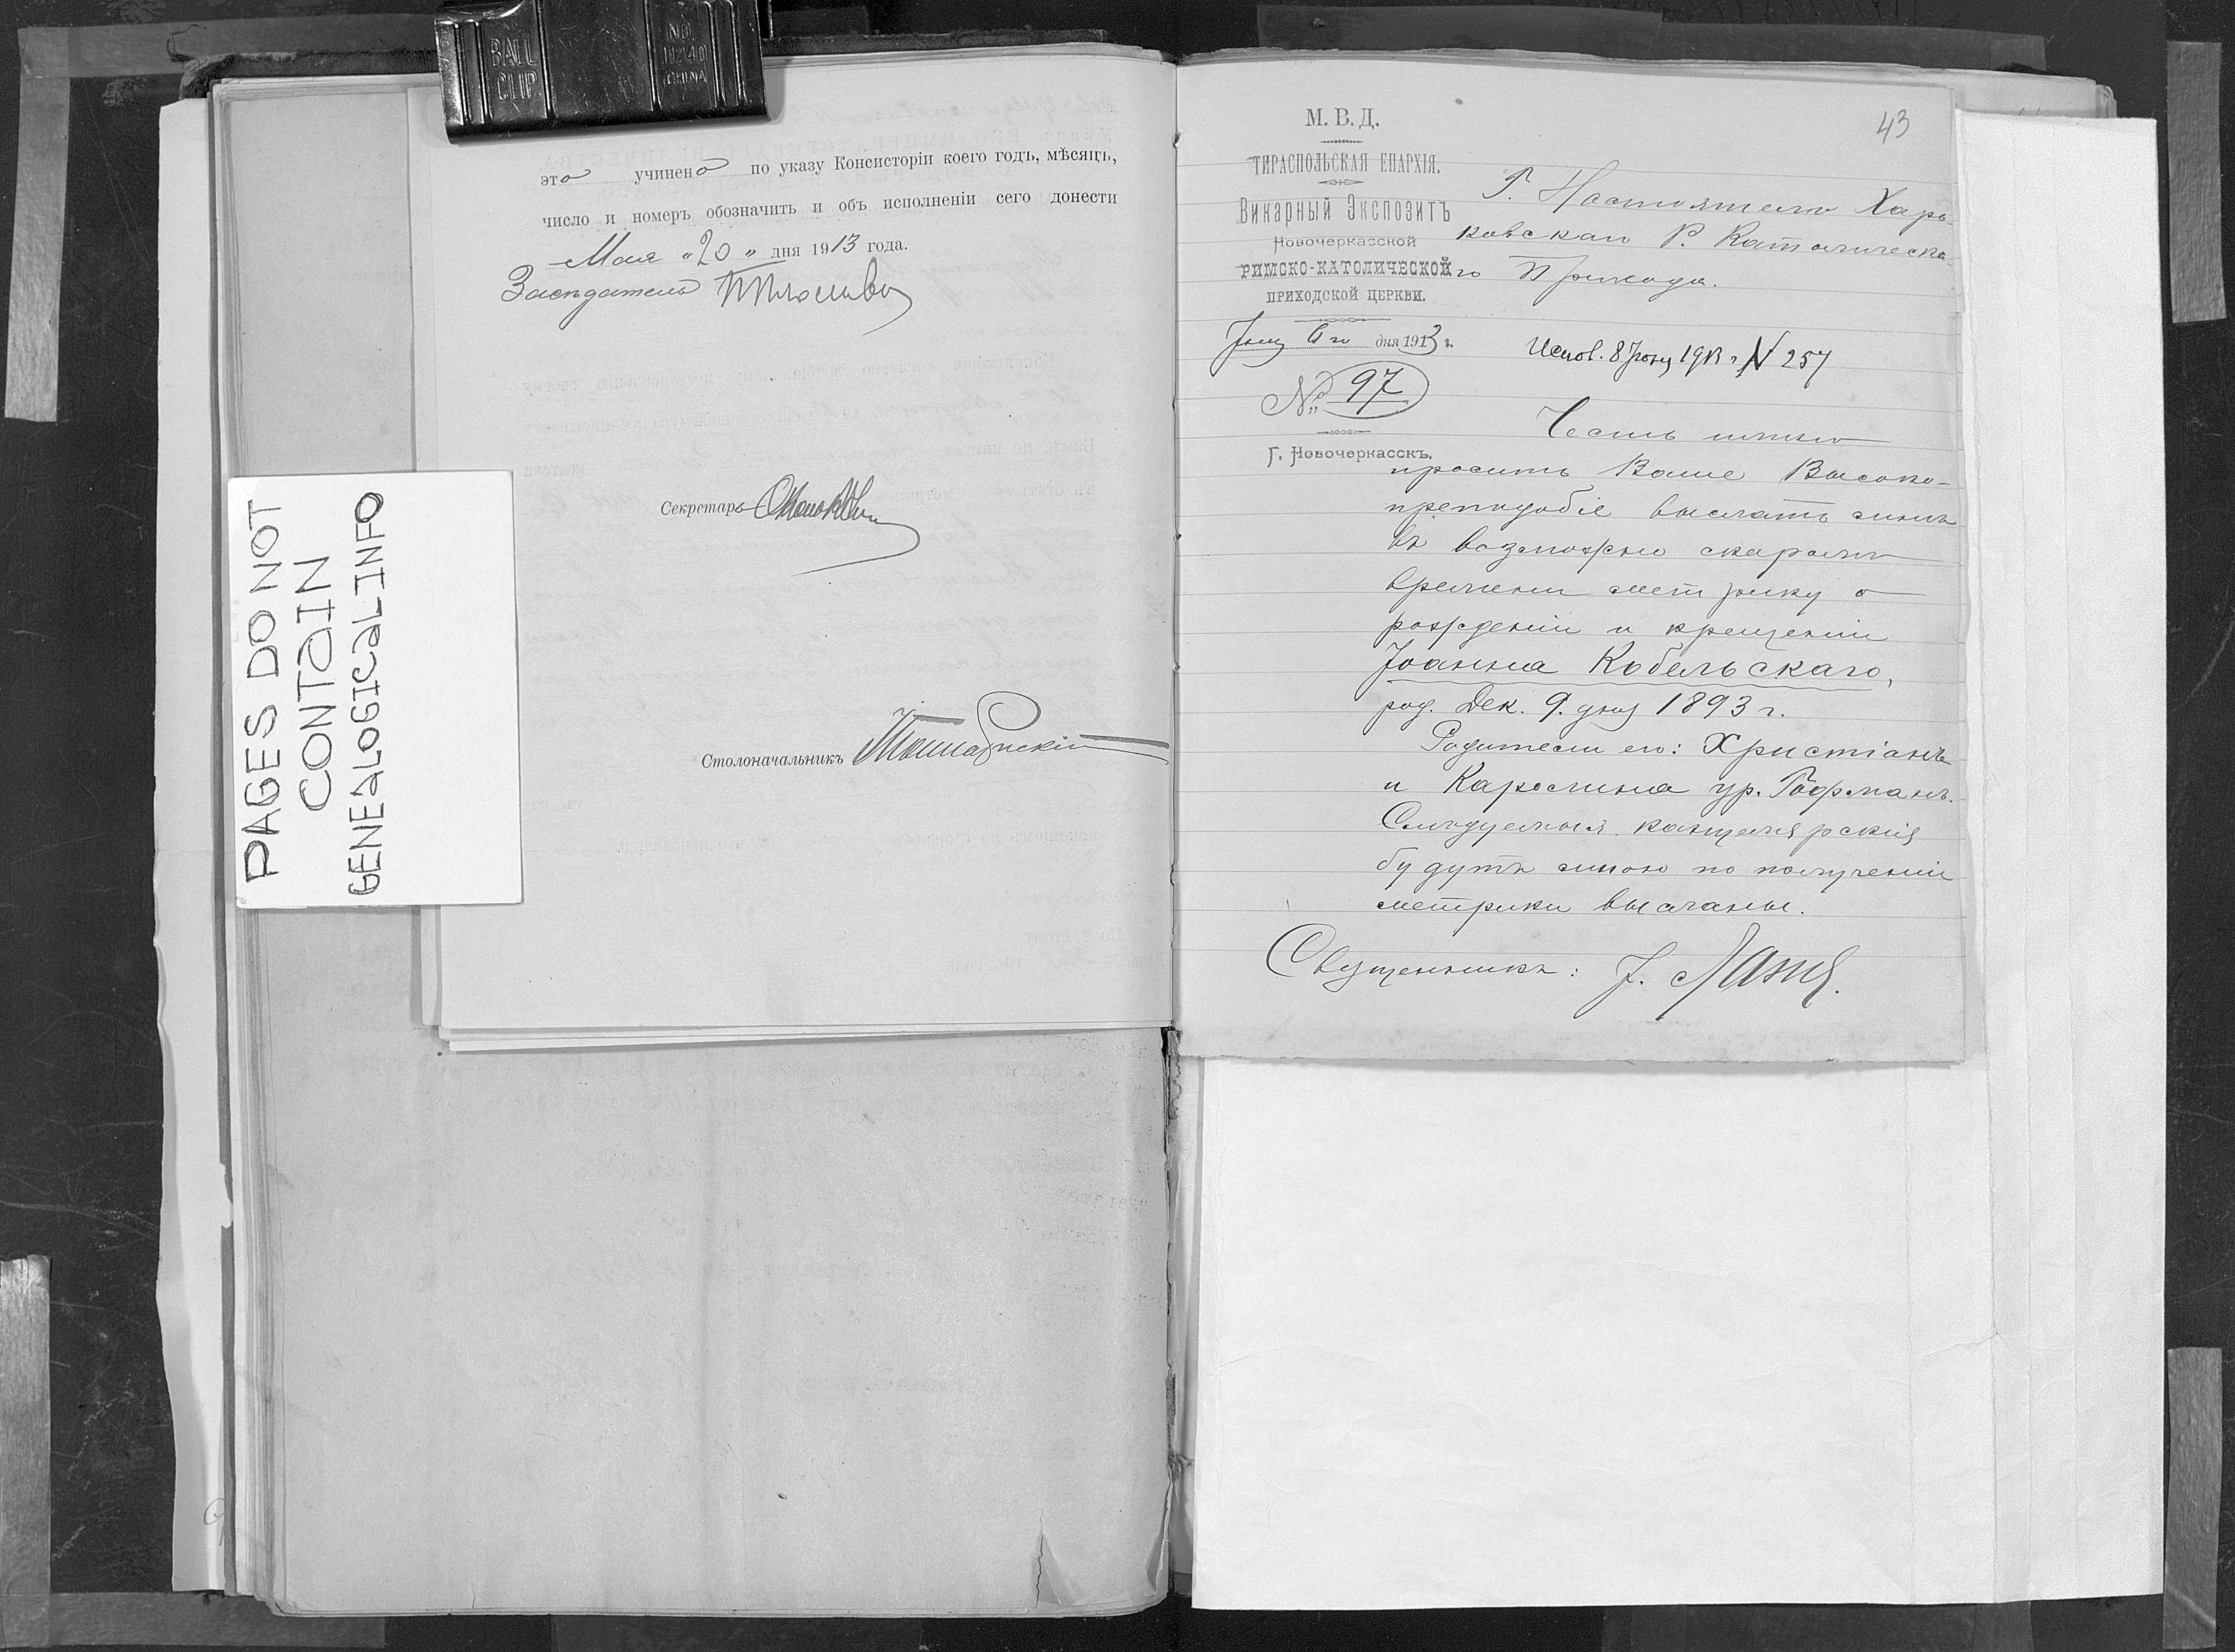 BALL
CLIP
NO.
11240
CHINA
PAGES DO NOT
CONTAIN
GENEALOGICAL INFO
это учинено по указу Консисторіи коего годъ, мѣсяцъ,
число и номеръ обозначить и объ исполненіи сего донести
Мая „20„ дня 1913 года.
Засѣдатель
Секретарь
Столоначальникъ
43
М. В. Д.
ТИРАСПОЛЬСКАЯ ЕПАРХІЯ.
Викарный Экспозитъ
Новочеркасской
РИМСКО-КАТОЛИЧЕСКОЙ
ПРИХОДСКОЙ ЦЕРКВИ.
Іюня 6го дня 1913 г.
№ 97
Г. Новочеркасскъ.
Г. Настоятелю Харь-
ковскаго Р. Католическа-
го Прихода.
Испол. 8 Іюня 1913 г. N 257
Честь имѣю
просить Ваше Высоко-
преподобіе выслать мнѣ
въ возможно скоромъ
времени метрику о
рожденіи и крещеніи
Іоанна Кобельскаго,
род. Дек. 9. дня 1893 г.
Родители его: Христіанъ
и Каролина ур. Гофманъ.
Слѣдуемыя канцелярскія
будутъ мною по полученіи
метрики высланы.
Священникъ: J.